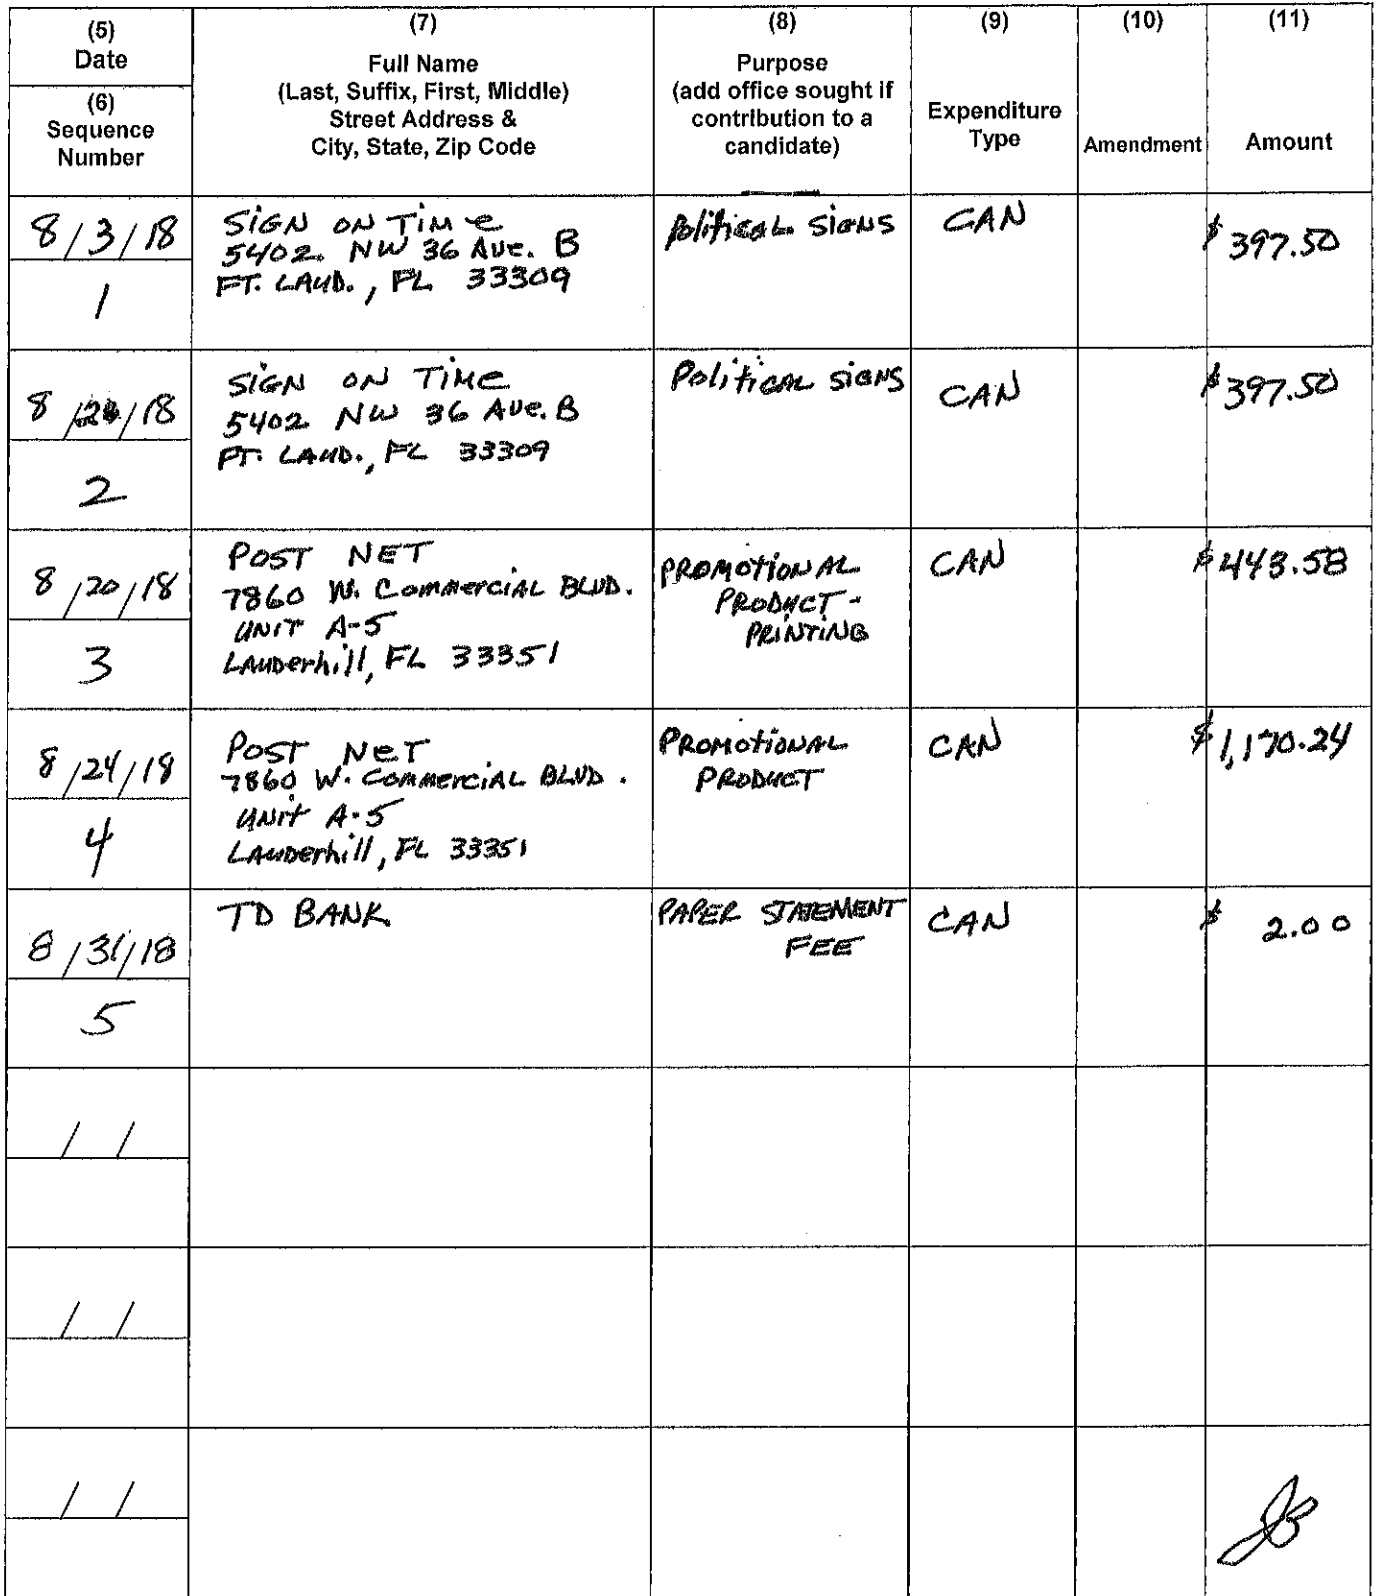 (5)
Date
(6)
Sequence
Number
(7)
Full Name
(Last, Suffix, First, Middle)
Street Address &
City, State, Zip Code
(8)
Purpose
(add office sought if
contribution to a
candidate)
(9)
Expenditure
Type
(10)
Amendment
(11)
Amount
8/3/18
1
SIGN ON TIME
5402. NW 36 AVE. B
FT. LAUD., FL 33309
Political Signs
CAN
$397.50
8/ /18
2
SIGN ON TIME
5402 NW 36 AVE. B
FT. LAUD., FL 33309
Political Signs
CAN
$397.50
8/20/18
3
POST NET
7860 W. Commercial BLVD.
UNIT A-5
Lauderhill, FL 33351
PROMOTIONAL
PRODUCT-
PRINTING
CAN
$443.58
8/24/18
4
POST NET
7860 W. Commercial BLVD.
Unit A-5
Lauderhill, FL 33351
PROMOTIONAL
PRODUCT
CAN
$1,170.24
8/31/18
5
TD BANK
PAPER STATEMENT
FEE
CAN
$ 2.00
/ /
/ /
/ /
JB